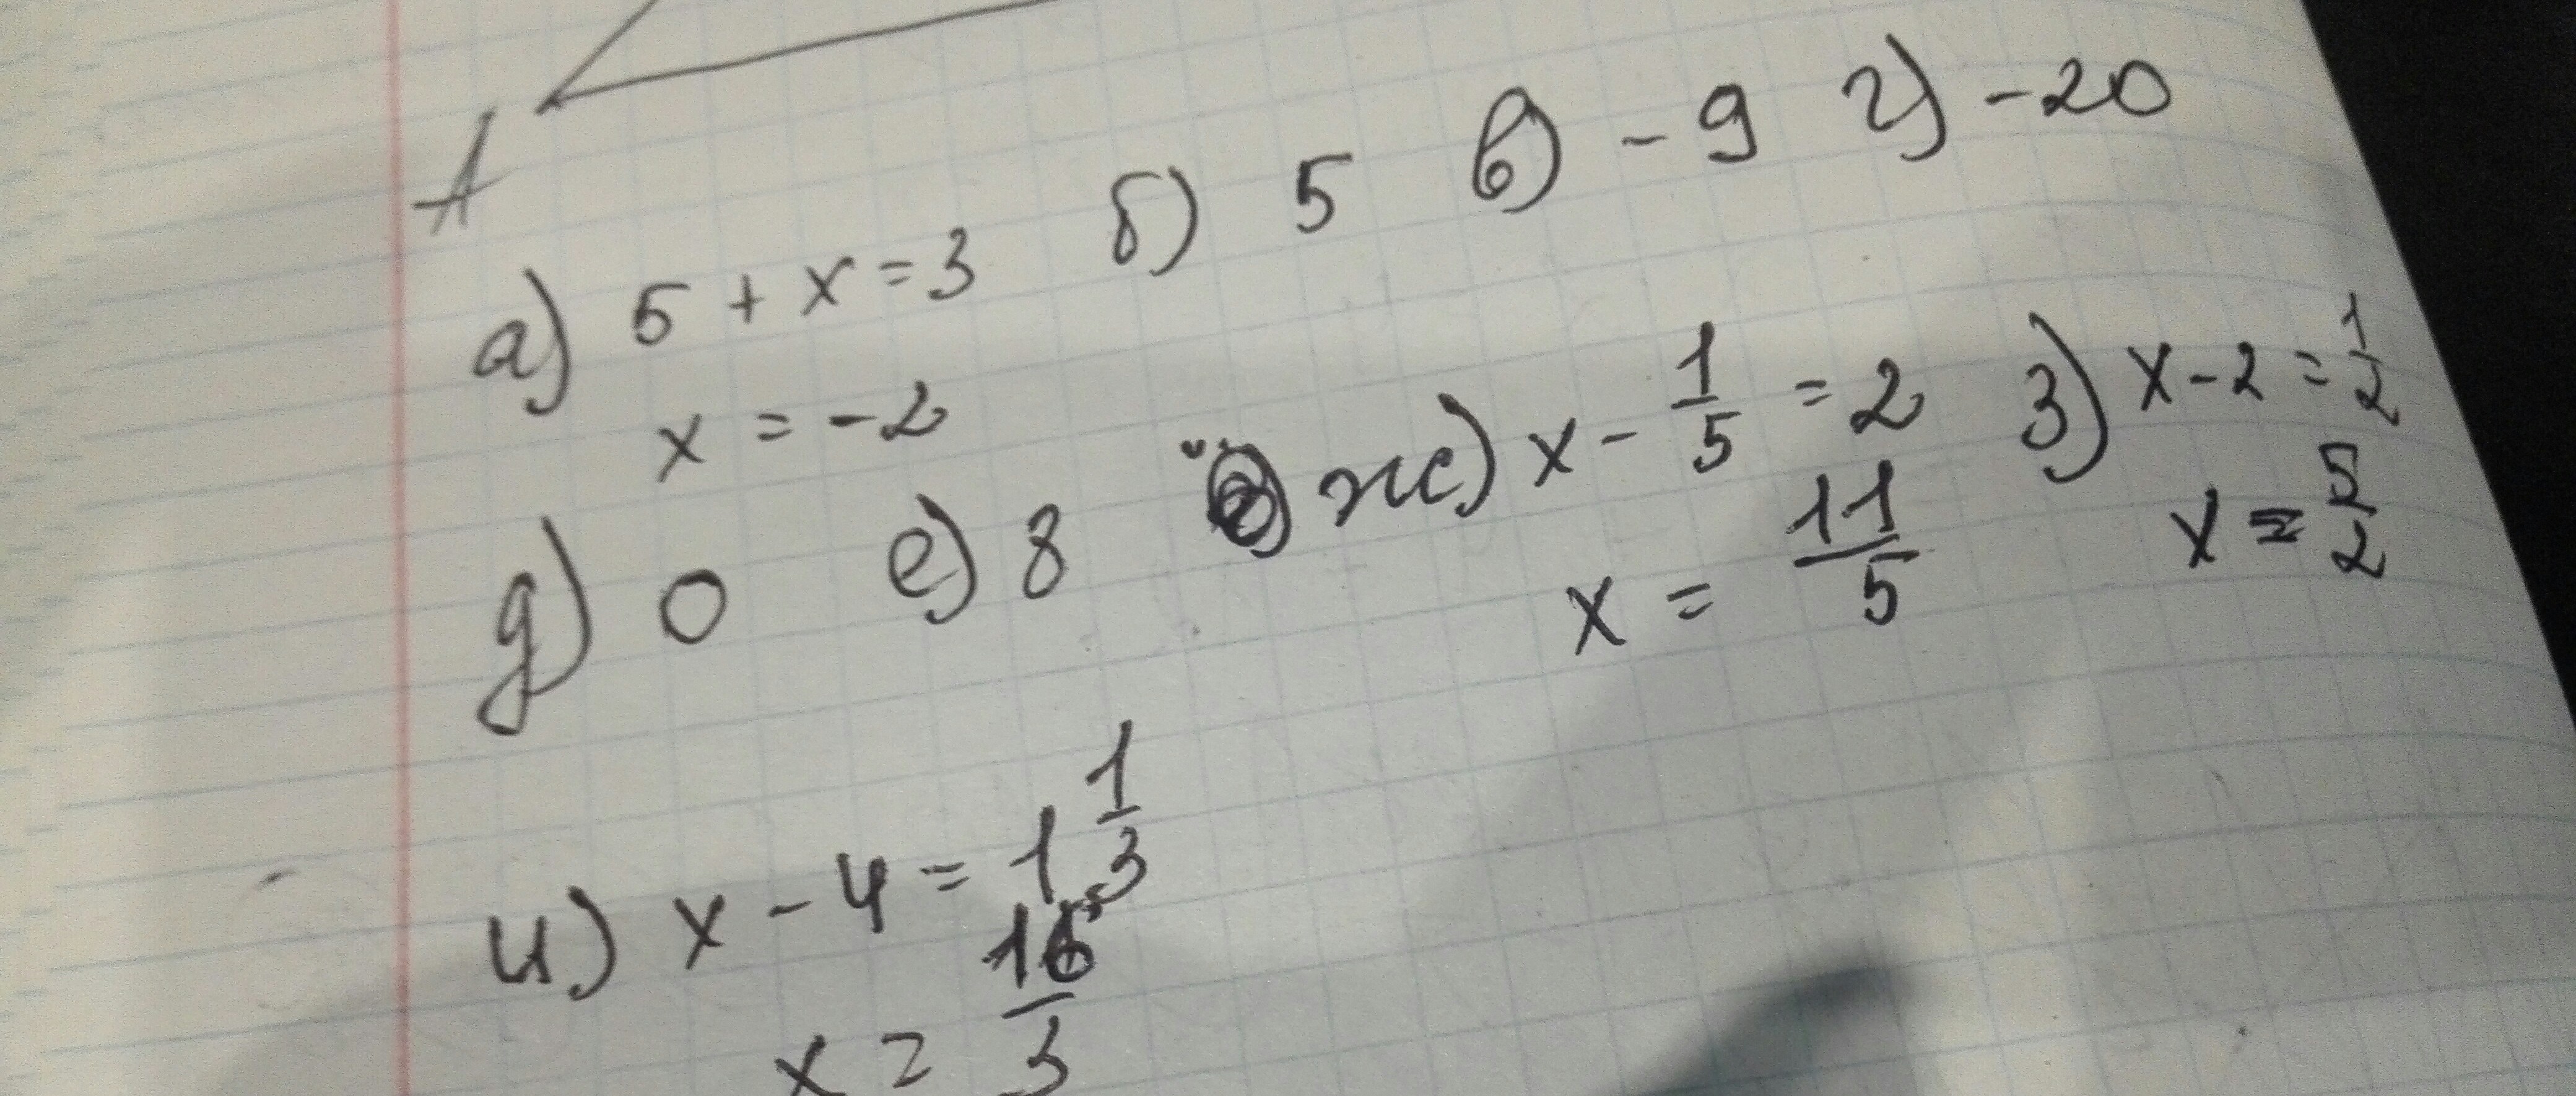 A
а) 5 + x = 3 б) 5 в) - 9 г) - 20
x = - 2
д) 0 е) 8 ж) x - 1/5 = 2 з) x - 2 = 1/2
x = 11/5 x = 5/2
и) x - 4 = 1 1/3
x = 16/3